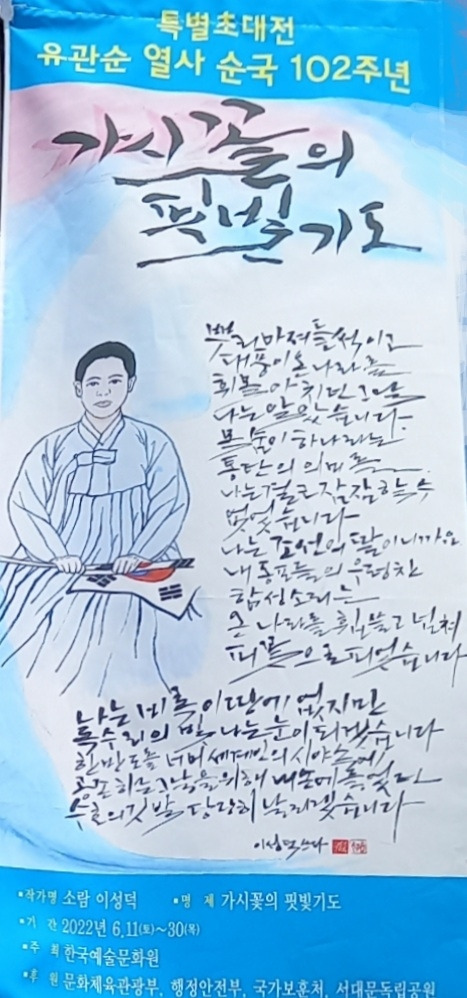 특별초대전
유관순 열사 순국 102주년
가시꽃의
핏빛기도
뿌리마져들썩이고
태풍이온나라를
휘몰아치던그날
나는알았습니다
목숨이하나라는
통탄의의미를
나는결코잠잠할수
없었습니다
나는조선의딸이니까요
내동포들의우렁찬
함성소리는
온나라를휩쓸고넘쳐
피꽃으로피었습니다
나는비록이땅에없지만
독수리의빛나는눈이되겠습니다
한반도를너머세계인의시야속에
공존하는그날을위해내손에들었던
수호의깃발당당히날리겠습니다
이성덕쓰다
•작가명 소람 이성덕 •명 제 가시꽃의 핏빛기도
•기 간 2022년 6.11(토)~30(목)
•주 최 한국예술문화원
•후 원 문화체육관광부, 행정안전부, 국가보훈처, 서대문독립공원